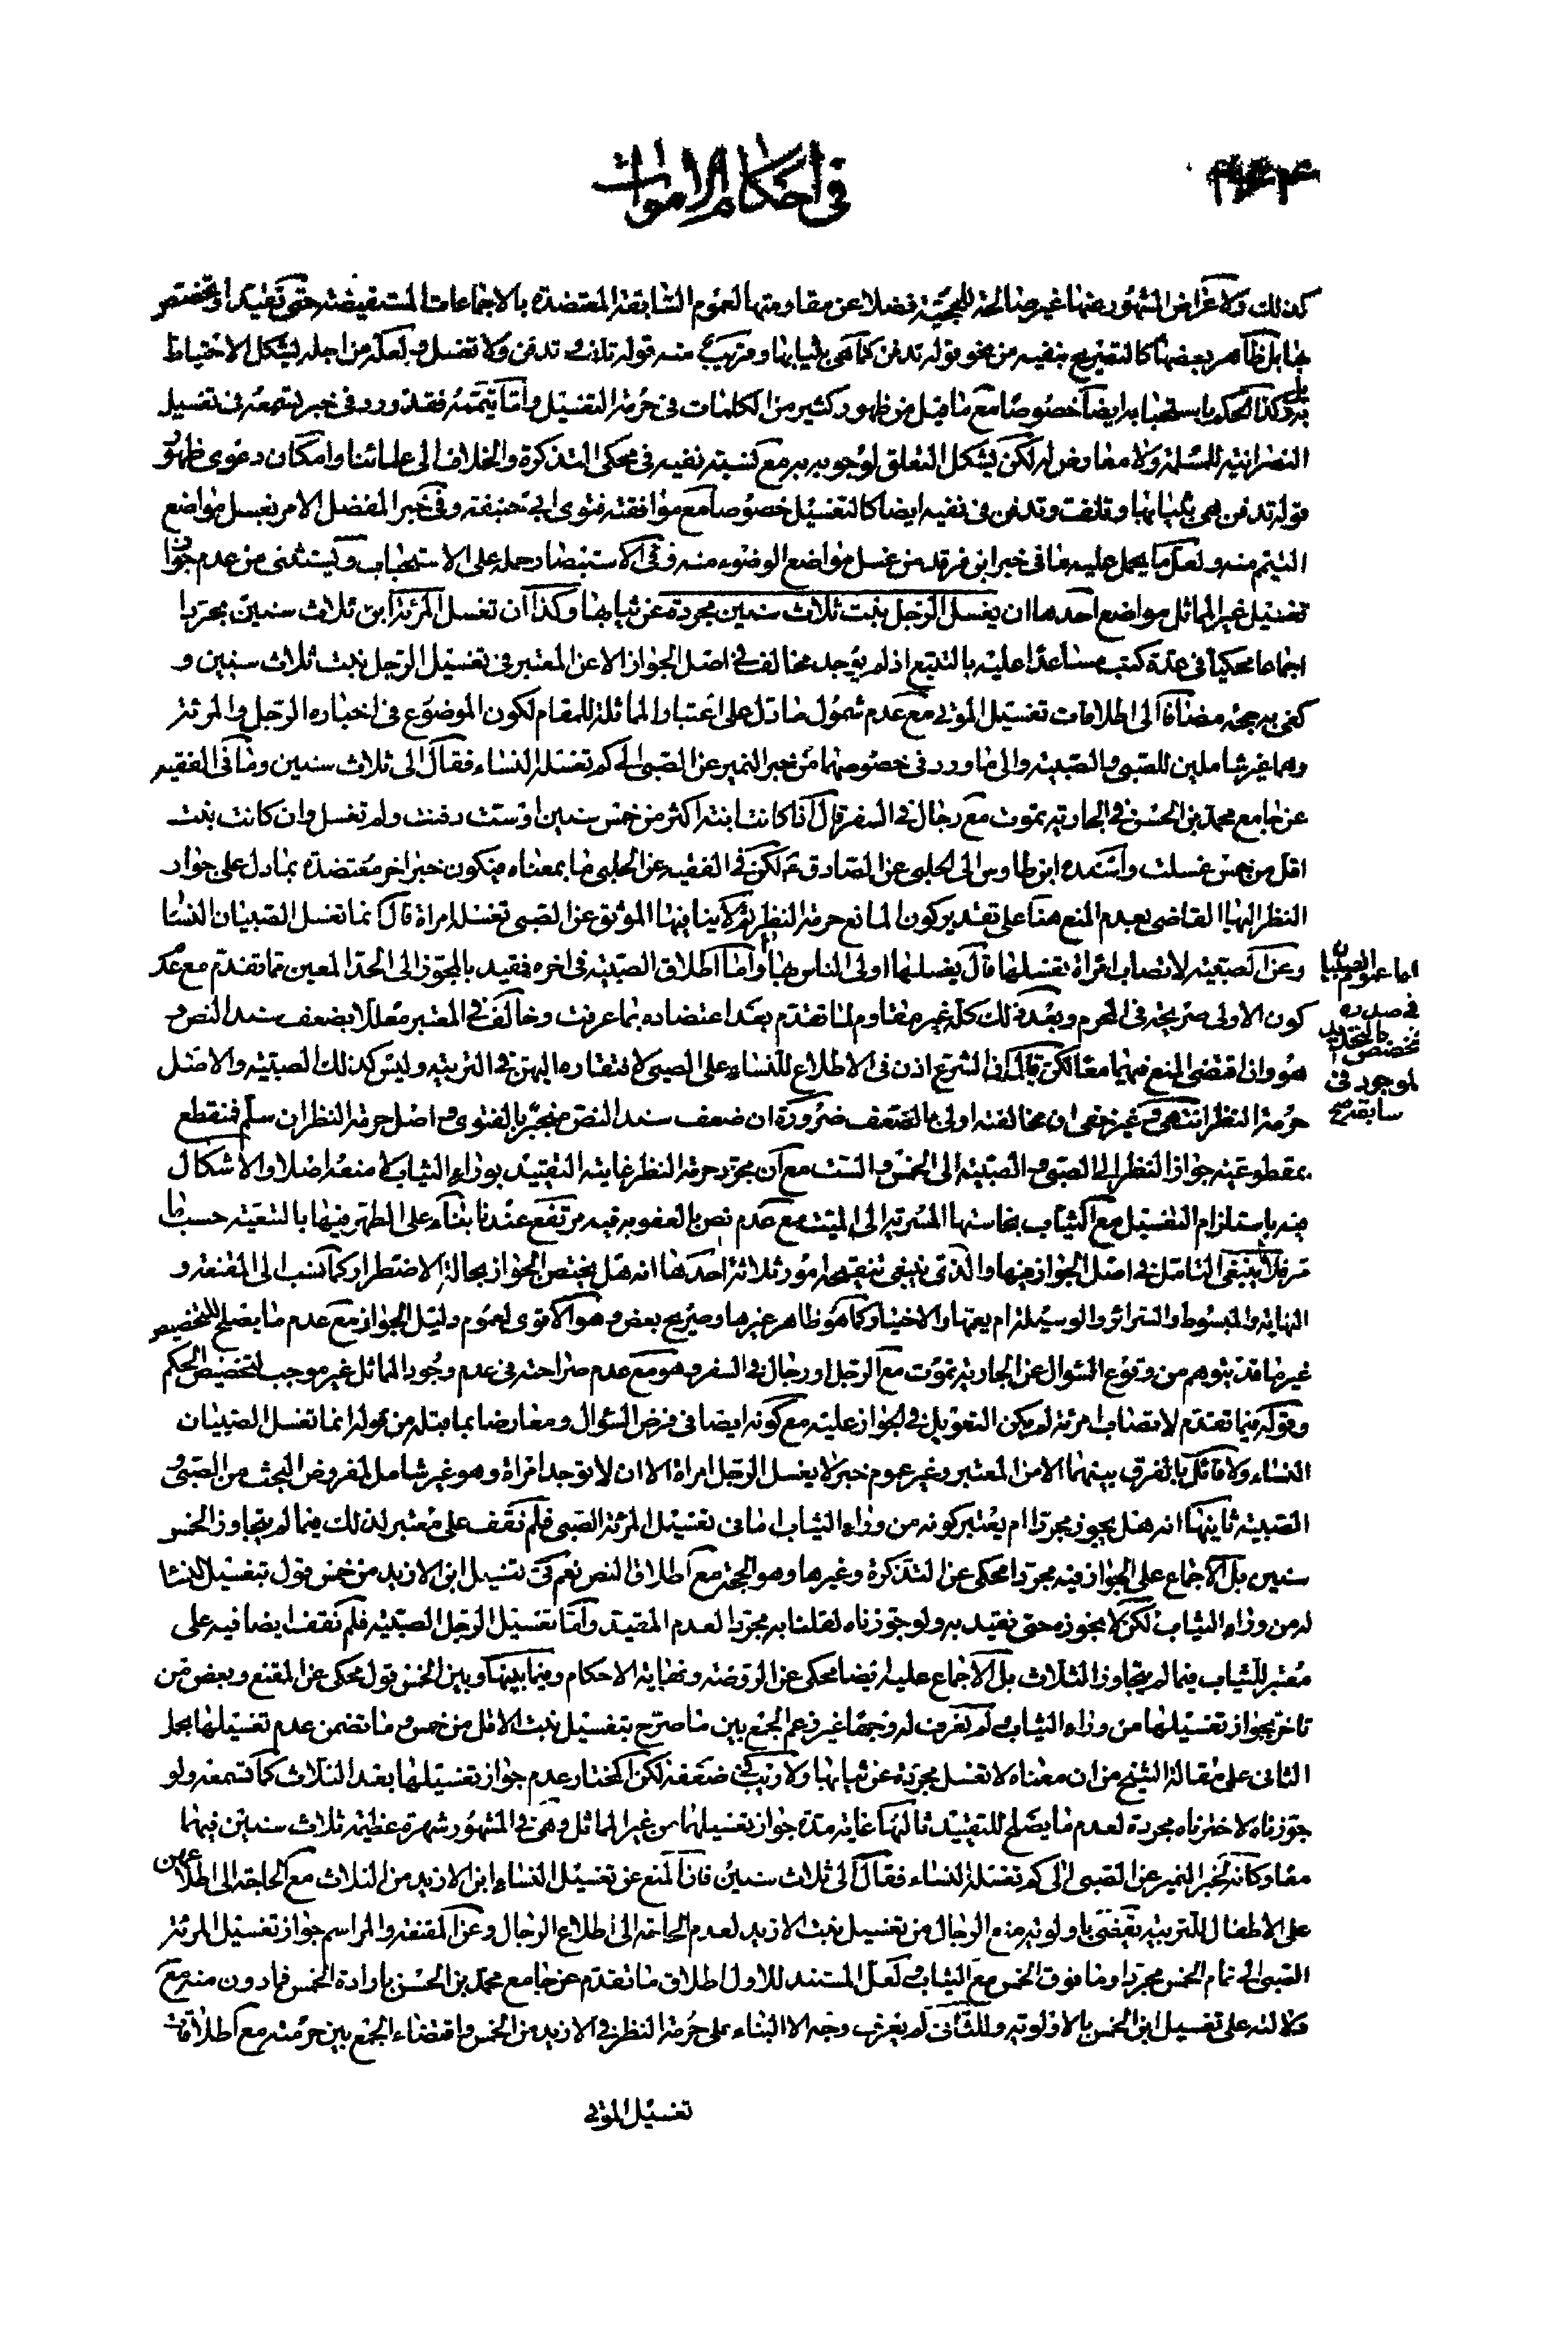 في احكام الاموات
كذلك ولاعراض المشهور عنها غير صالحة للحجية فضلا عن مقاومتها لعموم السابقة المعتضدة بالاجماعات المستفيضة حتى تقيد او تختص
بها بل ظاهر بعضها كالتصريح بنفيه من نحو قوله تدفن كما هي بثيابها وقريب منه قوله تلف وتدفن ولا تغسل ولعله من اجله يشكل الاحتياط
به بل وكذا الحكم باستحبابه ايضا خصوصا مع ما قيل من ظهور كثير من الكلمات في حرمة التغسيل واما تيممه فقد ورد في خبر لتسمعه في تغسيل
النصرانية للمسلمة ولا معارض له لكن يشكل التعلق لوجوبه به مع نسبة نفيه في محكي التذكرة والخلاف الى علمائنا وامكان دعوى ظهور
قوله تدفن هي بثيابها وتلف وتدفن في نفيه ايضا كالتغسيل خصوصا مع موافقته فتوى ابي حنيفة وفي خبر المفضل الامر بغسل مواضع
التيمم منه ولعل ما يحمل عليه ما في خبر ابن فرقد من غسل مواضع الوضوء منه وفي الاستبصار حمله على الاستحباب ويستثنى من عدم جواز
تغسيل غير المماثل مواضع احدها ان يغسل الرجل بنت ثلاث سنين مجردة عن ثيابها وكذا ان تغسل المرئة ابن ثلاث سنين مجردا
اجماعا محكيا في عدة كتب مساعدا عليه بالتتبع اذ لم يوجد مخالف في اصل الجواز الا عن المعتبر في تغسيل الرجل بنت ثلاث سنين و
كفى به حجة مضافا الى اطلاقات تغسيل الموتى مع عدم شمول ما دل على اعتبار المماثلة للمقام لكون الموضوع في اخباره الرجل والمرئة
وهما غير شاملين للصبي والصبية والى ما ورد في خصوصهما من خبر النمير عن الصبي الى كم تغسله النساء فقال الى ثلاث سنين وما في الفقيه
عن جامع محمد بن الحسن في الجارية تموت مع رجال في السفر قال اذا كانت ابنة اكثر من خمس سنين او ست دفنت ولم تغسل وان كانت بنت
اقل من خمس غسلت واسنده ابن طاوس الى الحلبي عن الصادق ع لكن في الفقيه عن الحلبي ما بمعناه فيكون خبرا اخر معتضدة بما دل على جواز
النظر اليها القاضي بعدم المنع هنا على تقدير كون المانع حرمة النظر ثم لا ينافيها الموثق عن الصبي تغسله امراة قال انما تغسل الصبيان النساء
وعن الصبية لا تصاب امراة تغسلها قال يغسلها اولى الناس بها واما اطلاق الصبية في اخره فيقيد بالمجوز الى الحد المعين مما تقدم مع عدم
كون الاولى صريحة في المحرم وبعد ذلك كله غير مقاوم لما تقدم بعد اعتضاده بما عرفت وخالف في المعتبر معللا بضعف سند النص و
هو وان اقتضى المنع فيهما معا لكن قال ان الشرع اذن في الاطلاع للنساء على الصبي لافتقاره اليهن في التربية وليس كذلك الصبية والاصل
حرمة النظر انتهى وغير خفي ان مخالفته اولى بالضعف ضرورة ان ضعف سند النص منجبر بالفتوى واصل حرمة النظر ان سلم فنقطع
بمقطوعية جواز النظر الى الصبي والصبية الى الخمس والست مع ان مجرد حرمة النظر غايته التقييد بوراء الثياب لا منعه اصلا والاشكال
فيه باستلزام التغسيل مع الثياب بنجاستها المسرية الى الميت مع عدم نص بالعفو به فيه مرتفع عندنا بناء على الطهر فيها بالتبعية حسب ما
مر فلا ينبغي التامل في اصل الجواز فيها والذي ينبغي تنقيحه امور ثلاثة احدها انه هل يختص الجواز بحالة الاضطرار كما نسب الى المقنعة و
النهاية والمبسوط والسرائر والوسيلة ام يعمها والاختيار كما هو ظاهر غيرها وصريح بعض وهو الاقوى لعموم دليل الجواز مع عدم ما يصلح للتخصيص
غير ما قد يتوهم من وقوع السوال عن الجارية تموت مع الرجل او رجال في السفر وهو مع عدم صراحته في عدم وجود المماثل غير موجب لتخصيص الحكم
وقوله فيما تقدم لا تصاب امرئة لم يكن التعويل في الجواز عليه مع كونه ايضا في فرض السؤال ومعارضا بما قبله من قوله انما تغسل الصبيان
النساء ولا قائل بالفرق بينهما الا من المعتبر وغير عموم خبر لا يغسل الرجل امراة الا ان لا توجد امراة وهو غير شامل لمفروض البحث من الصبي و
الصبية ثانيها انه هل يجوز مجردا ام يعتبر كونه من وراء الثياب اما في تغسيل المرئة الصبي فلم نقف على معتبر لذلك فيما لم يتجاوز الخمس
سنين بل الاجماع على الجواز فيه مجردا محكي عن التذكرة وغيرها وهو الحجة مع اطلاق النص نعم في تغسيل ابن الازيد من خمس قول بتغسيل النساء
له من وراء الثياب لكن لا نجوزه حتى نقيد به ولو جوزناه لقلنا به مجردا لعدم المقيد واما تغسيل الرجل الصبية فلم نقف ايضا فيه على
معتبر للثياب فيما لم يتجاوز الثلاث بل الاجماع عليه ايضا محكي عن الروضة ونهاية الاحكام وفيما بينها وبين الخمس قول محكي عن المقنع وبعض من
تاخر بجواز تغسيلها من وراء الثياب ولم نعرف له وجها غير زعم الجمع بين ما صرح بتغسيل بنت الاقل من خمس و ما تضمن عدم تغسيلها بحمل
الثاني على مقالة الشيخ من ان معناه لا تغسل مجردة عن ثيابها ولا ريب في ضعفه لكن المختار عدم جواز تغسيلها بعد الثلاث كما تسمعه ولو
جوزناه لاخترناه مجردة لعدم ما يصلح للتقييد ثالثها غاية مدة جواز تغسيلهما من غير المماثل وهي في المشهور شهرة عظيمة ثلاث سنين فيهما
معا وكانه لخبر النمير عن الصبي الى كم تغسله النساء فقال الى ثلاث سنين فان المنع عن تغسيل النساء ابن الازيد من الثلاث مع الحاجة الى اطلاعهن
على الاطفال للتربية يقضي باولوية منع الرجال من تغسيل بنت الازيد لعدم الحاجة الى اطلاع الرجال وعن المقنعة والمراسم جواز تغسيل المرئة
الصبي الى تمام الخمس مجردا وما فوق الخمس مع الثياب و لعل المستند للاول اطلاق ما تقدم عن جامع محمد بن الحسن بارادة الخمس فما دون منه مع
دلالته على تغسيل ابن الخمس بالاولوية وللثاني لم يعرف وجه الا البناء على حرمة النظر في الازيد من الخمس واقتضاء الجمع بين حرمته مع اطلاقات
تغسيل الموتى
اما عموم الصبيان
في صدره
فمخصص بالتحديد
الموجود في
سابقه صح